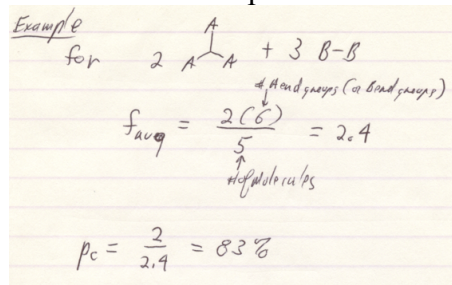 Example
for 2 A A A + 3 B-B
# A end groups (or B end groups)
f avg = 2(6) / 5 = 2.4
# of molecules
pc = 2 / 2.4 = 83%